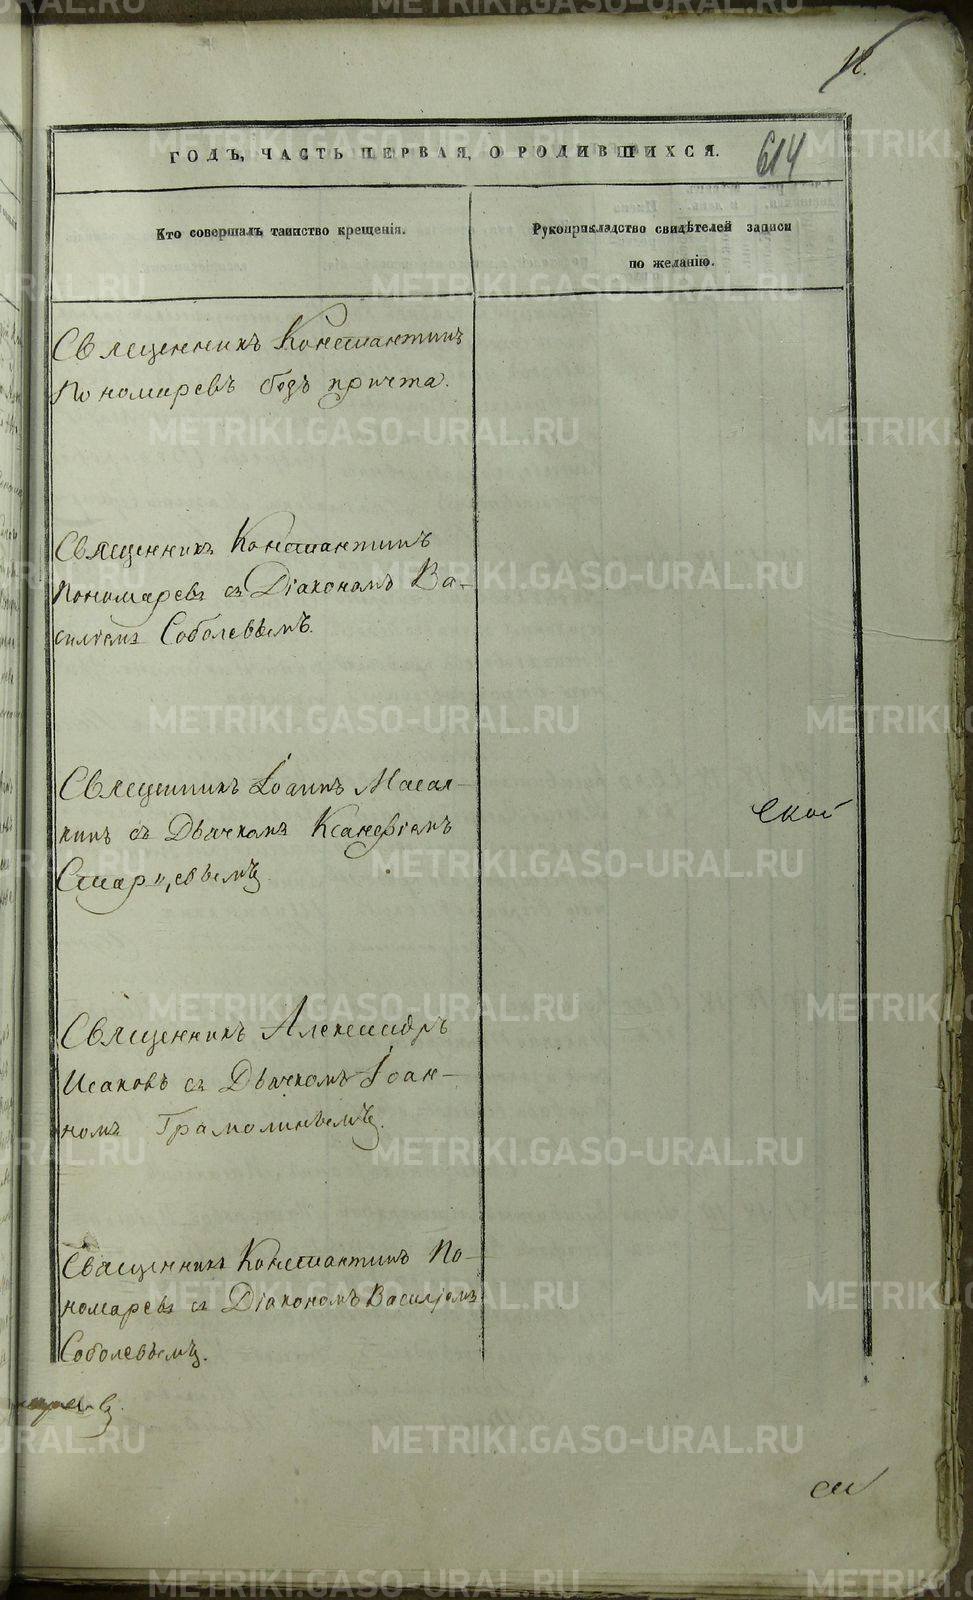 12.
ГОДЪ, ЧАСТЬ ПЕРВАЯ, О РОДИВШИХСЯ.
614
Кто совершалъ таинство крещенія.
Рукоприкладство свидѣтелей записи
по желанію.
Священникъ Константинъ
Пономаревъ безъ причта.
Священникъ Константинъ
Пономаревъ съ Діакономъ Ва-
силіемъ Соболевымъ.
Священникъ Іоаннъ Масал-
кинъ съ Дьячкомъ Ксанфіемъ
Старцевымъ
ской
Священникъ Александръ
Исаковъ съ Дьячкомъ Іоан-
номъ Грамолинымъ.
Священникъ Константинъ По-
номаревъ съ Діакономъ Василіемъ
Соболевымъ.
METRIKI.GASO-URAL.RU